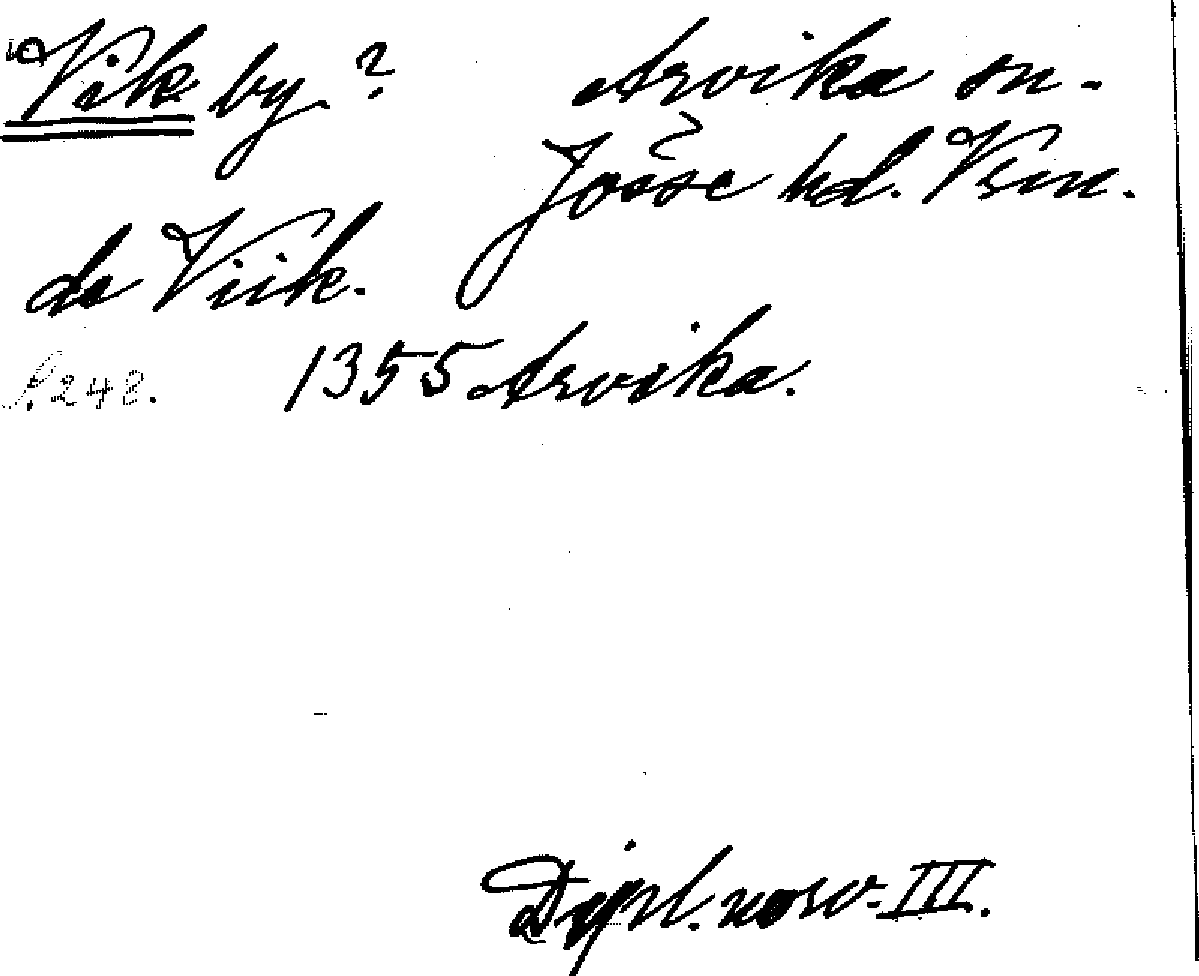 Vik by? Arvika sn.
Jösse hd. Vrm.
da Viik.
s. 248. 1355 Arvika.
Dipl. norv. III.